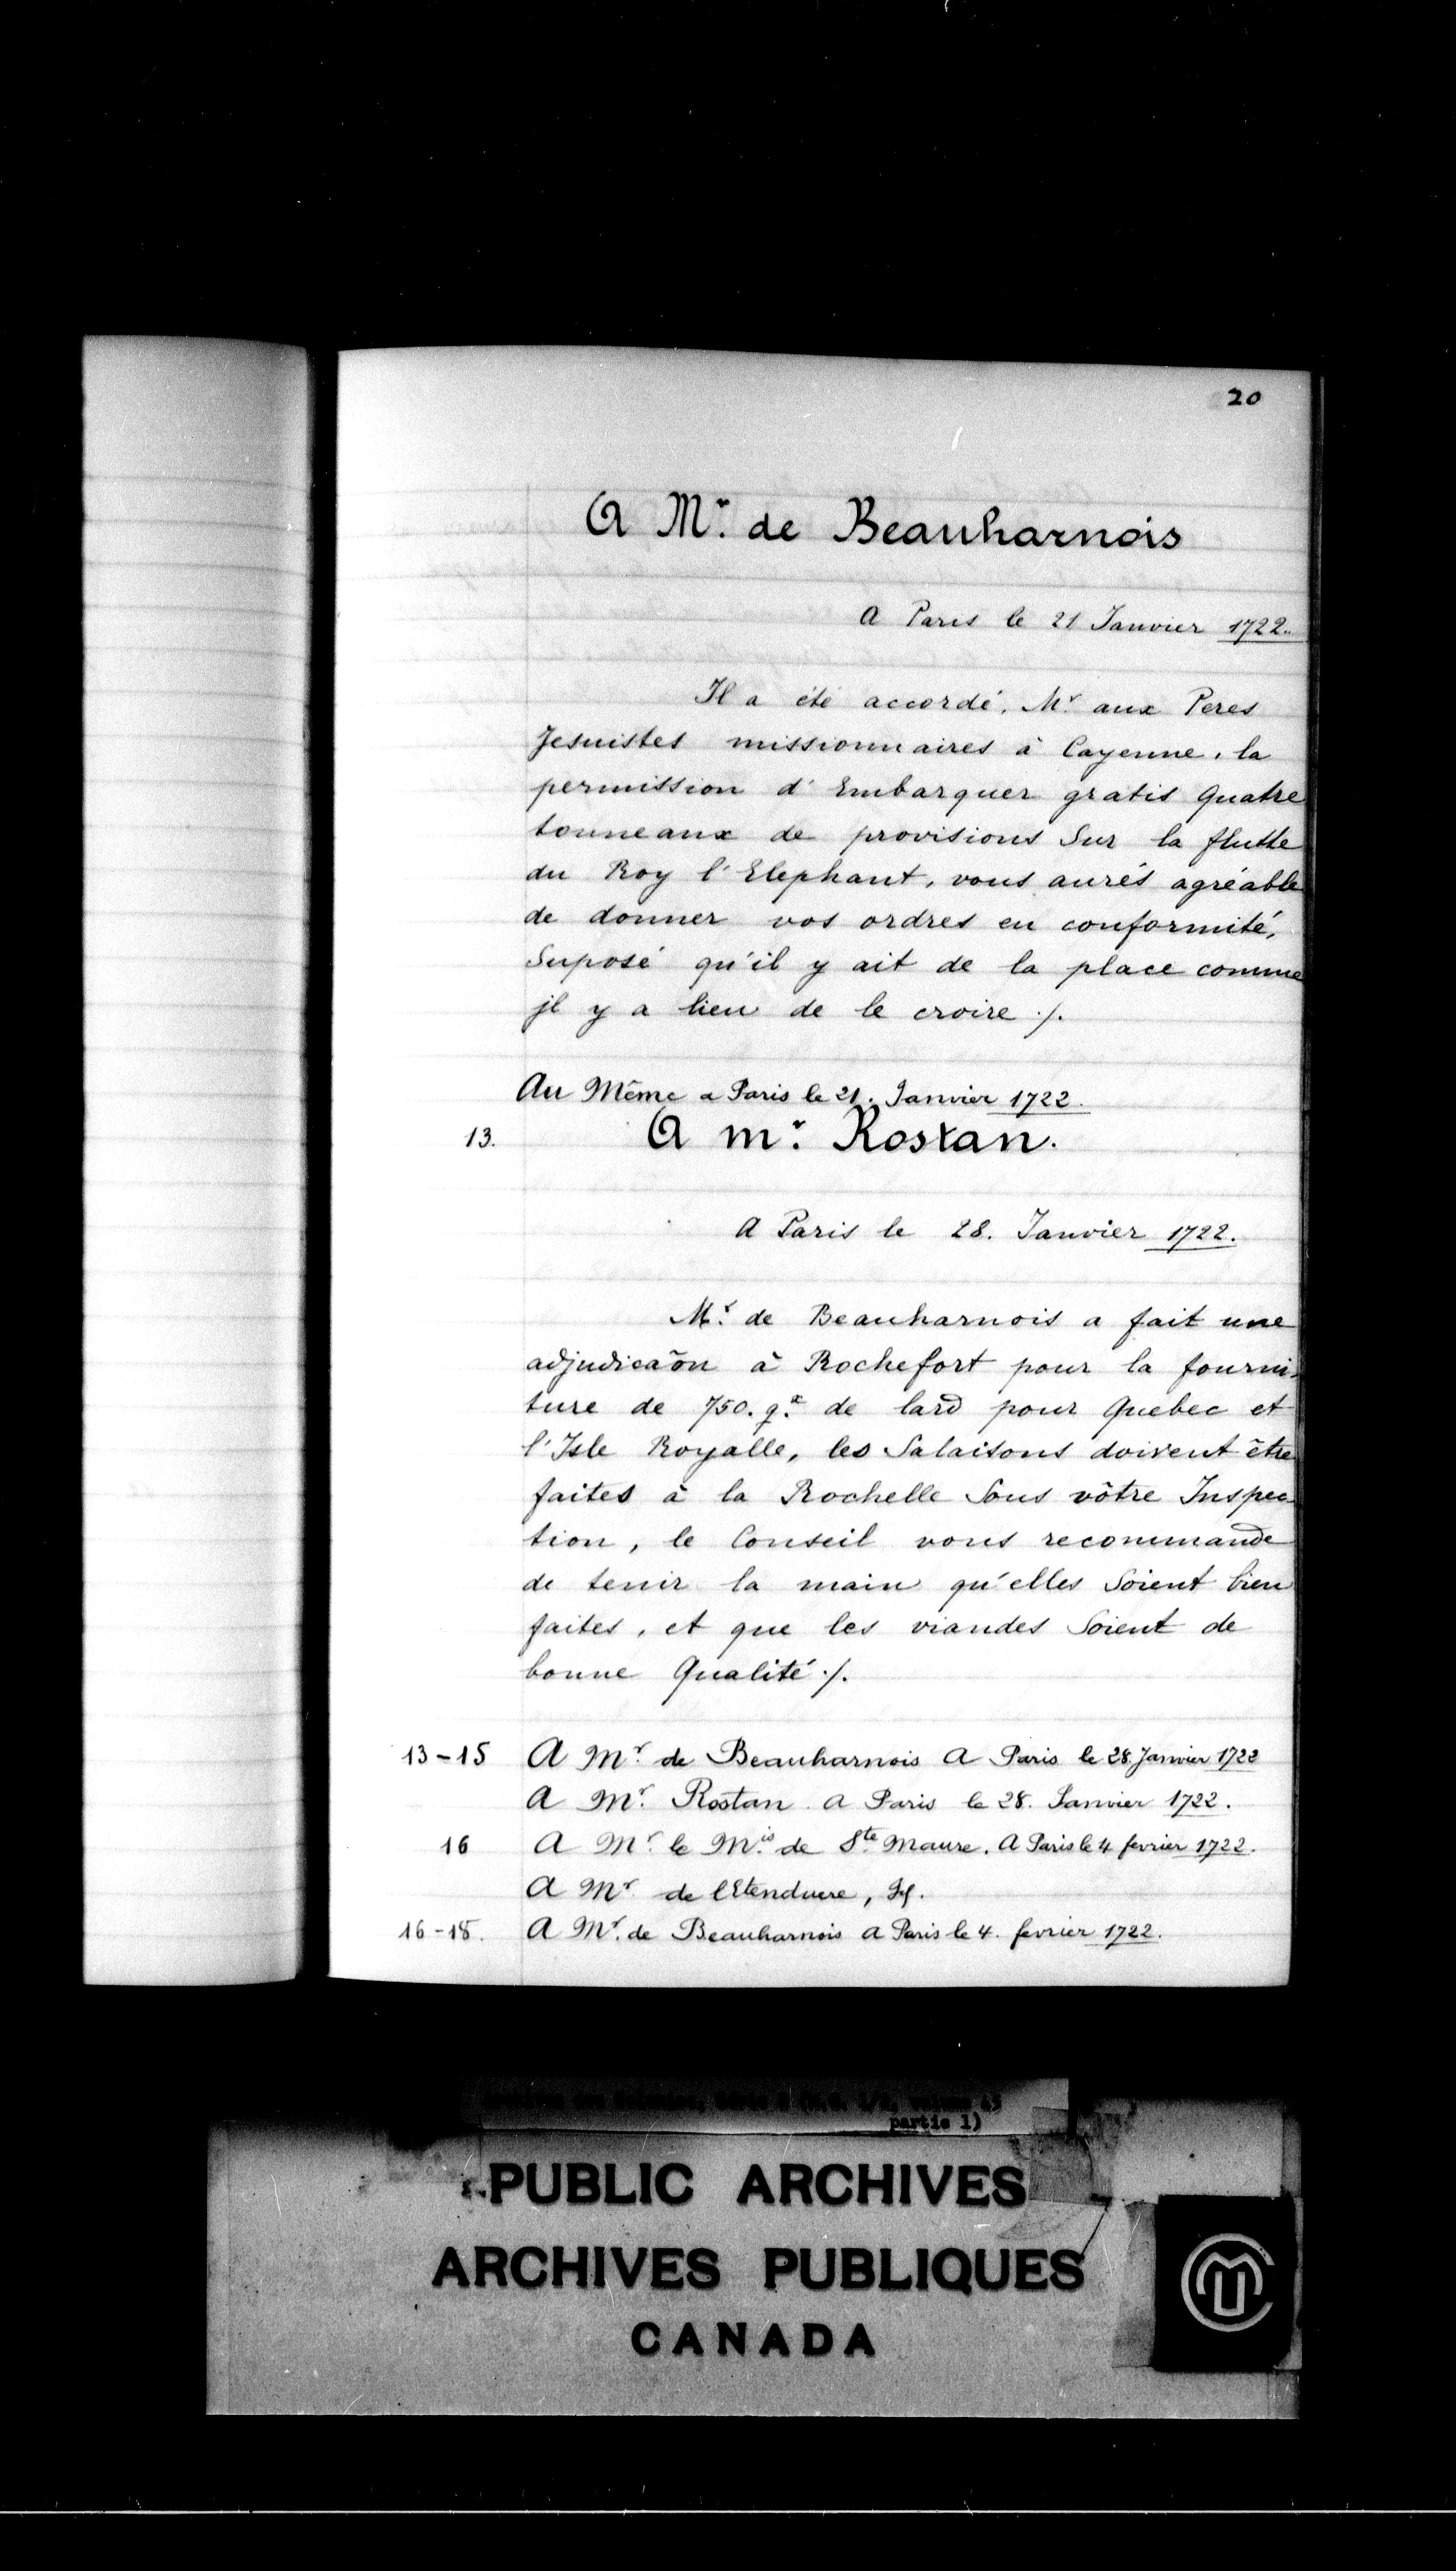 20
A Mr. de Beauharnois
A Paris le 21 Janvier 1722.
Il a été accordé, Mr aux Peres
Jesuistes missionnaires à Cayenne, la
permission d'Embarquer gratis Quatre
tonneaux de provisions Sur la flutte
du Roy l'Elephant, vous aurés agréable
de donner vos ordres en conformité,
Suposé qu'il y ait de la place comme
jl y a lieu de le croire ./.
Au Même a Paris le 21. Janvier 1722.
13. A mr. Rostan.
A Paris le 28. Janvier 1722.
Mr. de Beauharnois a fait une
adjudicaõn à Rochefort pour la fourni-
ture de 750. qx. de lard pour Quebec et
l'Isle Royalle, les Salaisons doivent être
faites à la Rochelle Sous vôtre Inspec
tion, le Conseil vous recommande
de tenir la main qu'elles Soient bien
faites, et que les viandes Soient de
bonne Qualité ./.
13-15 A Mr. de Beauharnois A Paris le 28. Janvier 1722
A Mr. Rostan. a Paris le 28. Janvier 1722.
16 A Mr. le Mis. de Ste. Maure. A Paris le 4 fevrier 1722.
A Mr. de l'Etenduere,
16-18. A Mr. de Beauharnois a Paris le 4. fevrier 1722.
partie 1)
PUBLIC ARCHIVES
ARCHIVES PUBLIQUES
CANADA